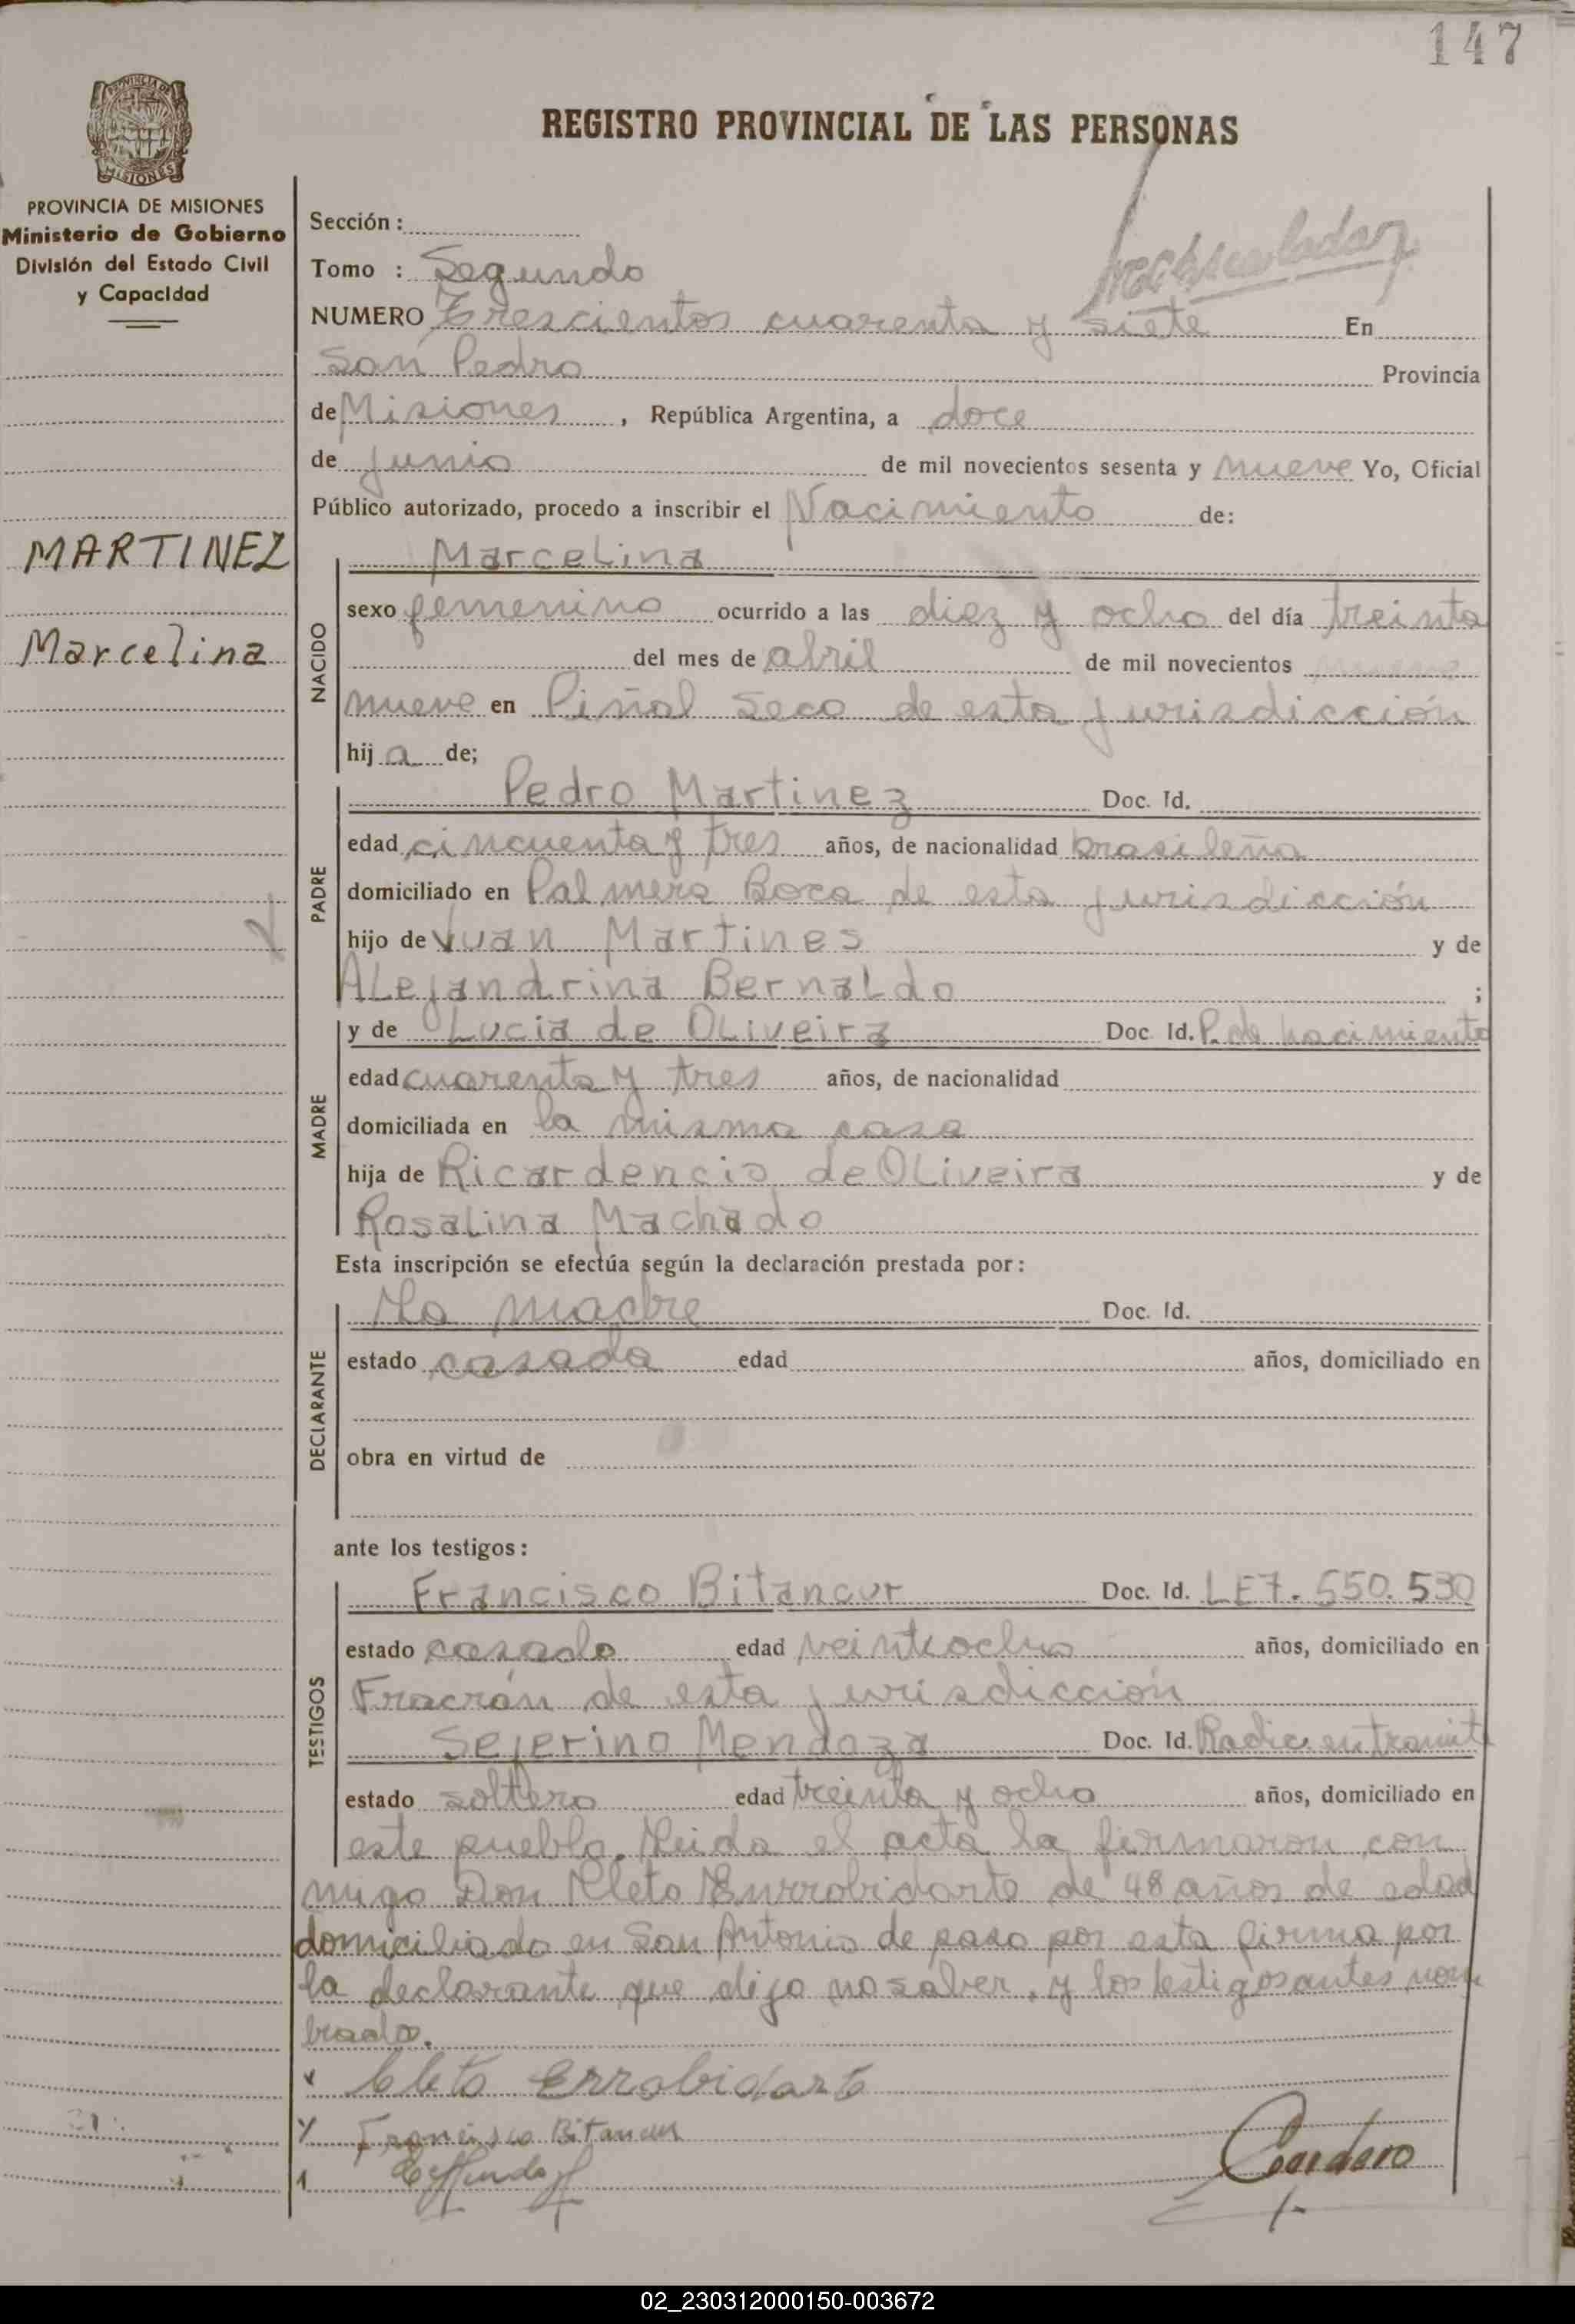 147
PROVINCIA DE
MISIONES
REGISTRO PROVINCIAL DE LAS PERSONAS
PROVINCIA DE MISIONES
Ministerio de Gobierno
División del Estado Civil
y Capacidad
Sección :
Tomo : Segundo
NUMERO Trescientos cuarenta y siete En
San Pedro Provincia
de Misiones , República Argentina, a doce
de junio de mil novecientos sesenta y nueve Yo, Oficial
Público autorizado, procedo a inscribir el Nacimiento de:
MARTINEZ
Marcelina
Marcelina
NACIDO
sexo femenino ocurrido a las diez y ocho del día treinta
del mes de abril de mil novecientos
nueve en Piñal Seco de esta jurisdicción
hij a de;
PADRE
Pedro Martinez Doc. Id.
edad cincuenta y tres años, de nacionalidad brasileña
domiciliado en Palmera Boca de esta jurisdicción
hijo de Juan Martines y de
Alejandrina Bernaldo ;
MADRE
y de Lucia de Oliveira Doc. Id. P. de nacimiento
edad cuarenta y tres años, de nacionalidad
domiciliada en la misma casa
hija de Ricardencio de Oliveira y de
Rosalina Machado
Esta inscripción se efectúa según la declaración prestada por:
DECLARANTE
La madre Doc. Id.
estado casada edad años, domiciliado en
obra en virtud de
ante los testigos:
TESTIGOS
Francisco Bitancur Doc. Id. LE7.550.530
estado casado edad veintiocho años, domiciliado en
Fracrán de esta jurisdicción
Seferino Mendoza Doc. Id. Radic. en tramite
estado soltero edad treinta y ocho años, domiciliado en
este pueblo. Leida el acta la firmaron con
migo Don Kleto Eurrobidarte de 48 años de edad
domiciliado en San Antonio de paso por esta firma por
la declarante que dijo no saber, y los testigos antes nom
brados.
x Cleto Errobidarte
Francisco Bitancur
Cordero
02_230312000150-003672